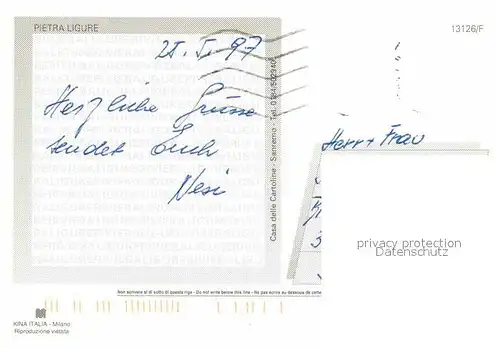 PIETRA LIGURE
13126/F
25. V. 97
Herzliche Grüsse
sendet Euch
Vesi
Herr + Frau
Casa delle Cartoline - Sanremo - Tel. 0184/502340
privacy protection
Datenschutz
Non scrivere al di sotto di questa riga - Do not write below this line - Ne pas écrire au dessous de cette
KINA ITALIA - Milano
Riproduzione vietata